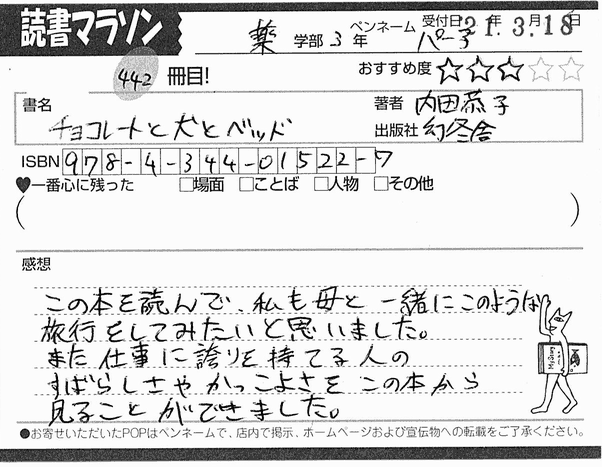 読書マラソン
薬 学部 3 年 ペンネーム パー子 受付日 21年3月18日
442 冊目! おすすめ度 ☆☆☆☆☆
書名 チョコレートと犬とベッド
著者 内田恭子
出版社 幻冬舎
ISBN 978-4-344-01522-7
♥一番心に残った □場面 □ことば □人物 □その他
( )
感想
この本を読んで、私も母と一緒にこのような
旅行をしてみたいと思いました。
また仕事に誇りを持てる人の
すばらしさやかっこよさをこの本から
見ることができました。
●お寄せいただいたPOPはペンネームで、店内で掲示、ホームページおよび宣伝物への転載をご了承ください。